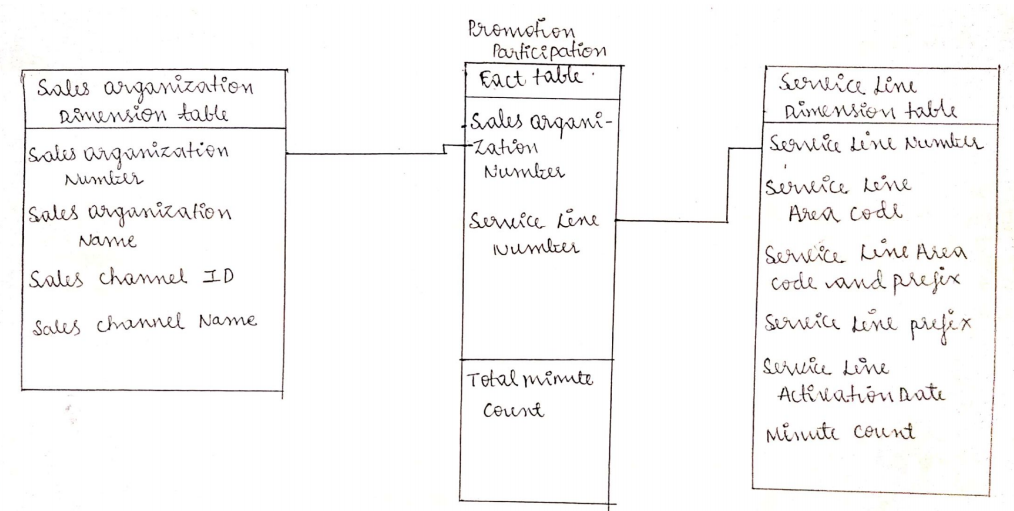 Sales organization
Dimension table
Sales organization
Number
Sales organization
Name
Sales channel ID
Sales channel Name
Promotion
Participation
Fact table
Sales organi-
zation
Number
Service Line
Number
Total minute
Count
Service Line
Dimension table
Service Line Number
Service Line
Area code
Service Line Area
code and prefix
Service Line prefix
Service Line
Activation Date
Minute count